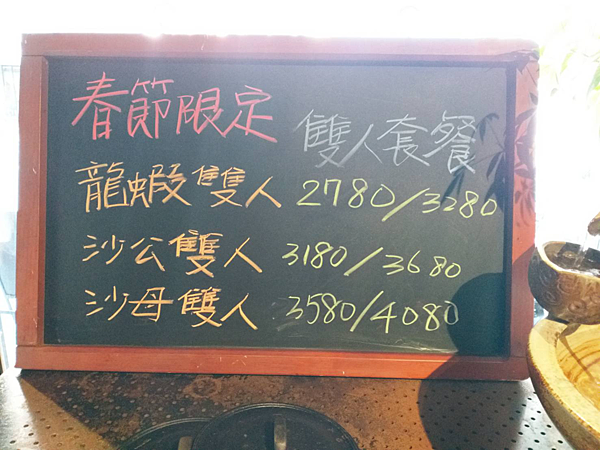 春節限定 雙人套餐
龍蝦雙人 2780/3280
沙公雙人 3180/3680
沙母雙人 3580/4080